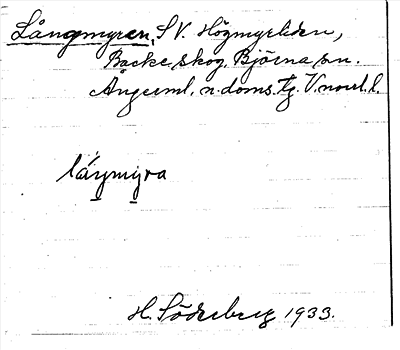 Långmyren, SV. Högmyrliden,
Backe skog, Björna sn.
Ångerml. n. doms. tg. V.norrl. l.
låŋmyra
H. Söderberg 1933.